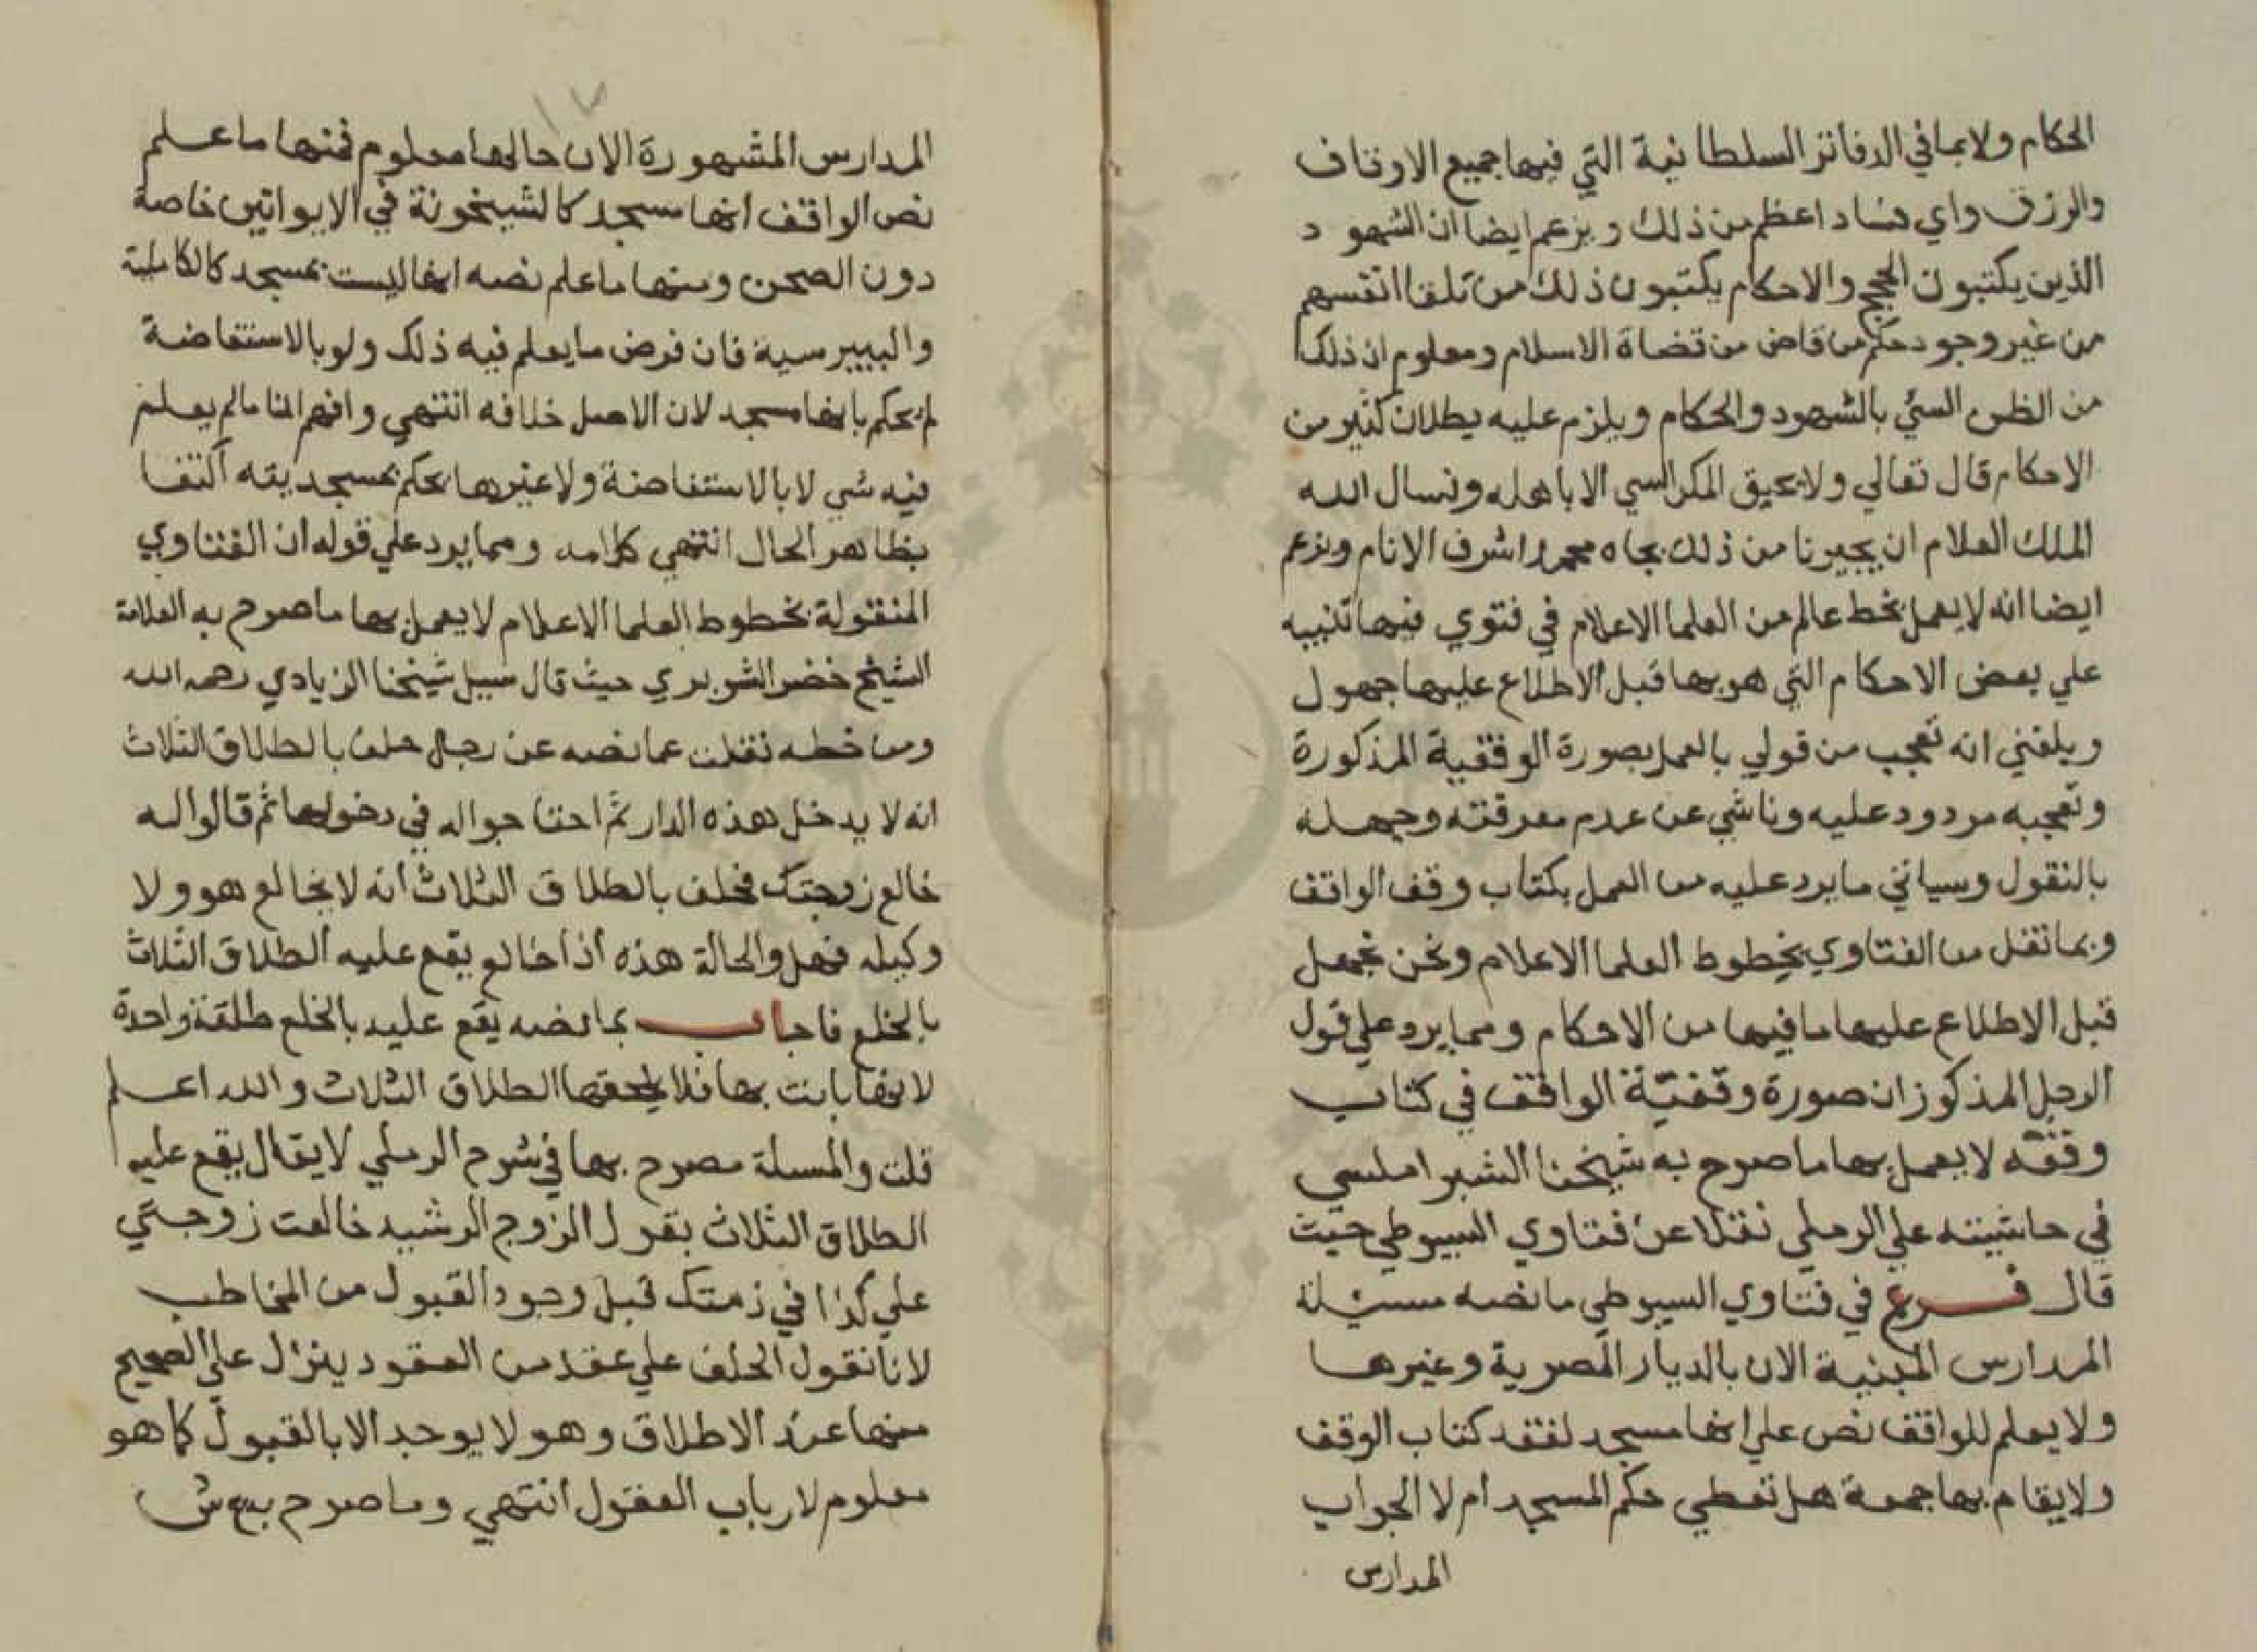 الحكام ولا بما في الدفاتر السلطانية التي فيها جميع الاوقاف
والرزق واي فساد اعظم من ذلك ويزعم ايضا ان الشهود
الذين يكتبون الحجج والاحكام يكتبون ذلك من تلقا انفسهم
من غير وجود حكم من قاض من قضاة الاسلام ومعلوم ان ذلك
من الظن السئ بالشهود والحكام ويلزم عليه بطلان كثير من
الاحكام قال تعالي ولا يحيق المكر السي الا باهله ونسال الله
الملك العلام ان يجيرنا من ذلك بجاه محمد اشرف الانام ويزعم
ايضا انه لا يعمل بخط عالم من العلما الاعلام في فتوي فيها تنبيه
علي بعض الاحكام التي هو بها قبل الاطلاع عليها جهول
وبلغني انه تعجب من قولي بالعمل بصورة الوقفية المذكورة
وتعجبه مردود عليه وناشي عن عدم معرفته وجهله
بالنقول وسياتي ما يرد عليه من العمل بكتاب وقف الواقف
وبما نقل من الفتاوي بخطوط العلما الاعلام ونحن نجهل
قبل الاطلاع عليها ما فيها من الاحكام ومما يرد علي قول
الرجل المذكور ان صورة وقفية الواقف في كتاب
وقفه لا يعمل بها ما صرح به شيخنا الشبراملسي
في حاشيته علي الرملي نقلا عن فتاوي السيوطي حيث
قال فرع في فتاوي السيوطي ما نصه مسئلة
المدارس المبنية الان بالديار المصرية وغيرها
ولا يعلم للواقف نص علي انها مسجد لفقد كتاب الوقف
ولا يقام بها جمعة هل تعطي حكم المسجد ام لا الجواب
المدارس
١٧
المدارس المشهورة الان حالها معلوم فمنها ما علم
نص الواقف انها مسجد كالشيخونة في الايواتين خاصة
دون الصحن ومنها ما علم نصه انها ليست بمسجد كالكاملية
والبيبرسية فان فرض ما يعلم فيه ذلك ولو بالاستفاضة
لم يحكم بانها مسجد لان الاصل خلافه انتهي وافهم المنا ما لم يعلم
فيه شي لا بالاستفاضة ولا غيرها يحكم بمسجديته اكتفا
بظاهر الحال انتهي كلامه ومما يرد علي قوله ان الفتاوي
المنقولة بخطوط العلما الاعلام لا يعمل بها ما صرح به العلامة
الشيخ خضر الشوبري حيث قال سيل شيخنا الزيادي رحمه الله
ومن خطه نقلت عما نصه عن رجل حلف بالطلاق الثلاث
انه لا يدخل هذه الدار ثم احتاجوا اله في دخولها ثم قالوا له
خالع زوجتك فحلف بالطلاق الثلاث انه لا يخالع هو ولا
وكيله فهل والحالة هذه اذا خالع يقع عليه الطلاق الثلاث
بالخلع فاجاب بما نصه يقع عليه بالخلع طلقة واحدة
لانها بانت بها فلا يلحقها الطلاق الثلاث والله اعلم
قلت والمسلة مصرح بها في شرح الرملي لا يقال يقع عليه
الطلاق الثلاث بقول الزوج الرشيد خالعت زوجتي
علي كذا في ذمتك قبل وجود القبول من المخاطب
لانا نقول الحلف علي عقد من العقود ينزل علي الصحيح
منها عند الاطلاق وهو لا يوجد الا بالقبول كما هو
معلوم لارباب العقول انتهي وما صرح به ع ش